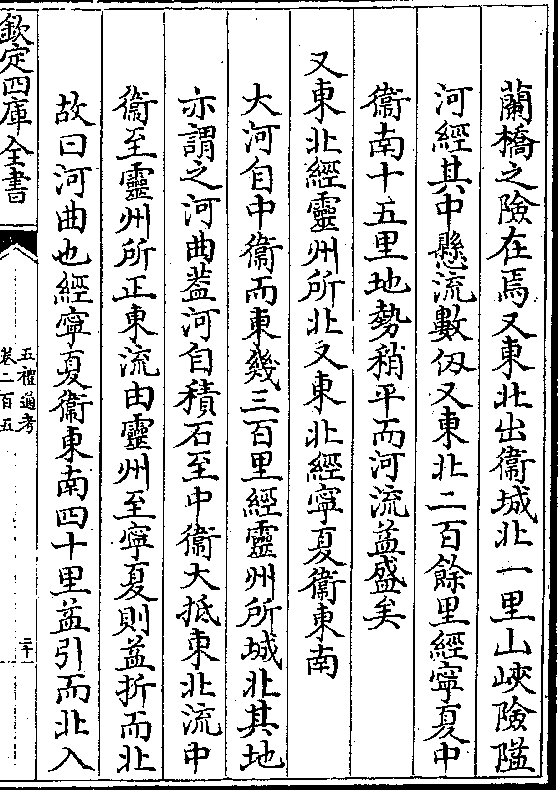 蘭橋之險在焉又東北出衞城北一里山峽險隘
河經其中懸流數仭又東北二百餘里經寧夏中
衞南十五里地勢稍平而河流益盛矣
又東北經靈州所北又東北經寧夏衞東南
大河自中衞而東幾三百里經靈州所城北其地
亦謂之河曲葢河自積石至中衞大抵東北流中
衞至靈州所正東流由靈州至寧夏則益折而北
故曰河曲也經寧夏衞東南四十里益引而北入
欽定四庫全書
五禮通考
卷二百五
二十